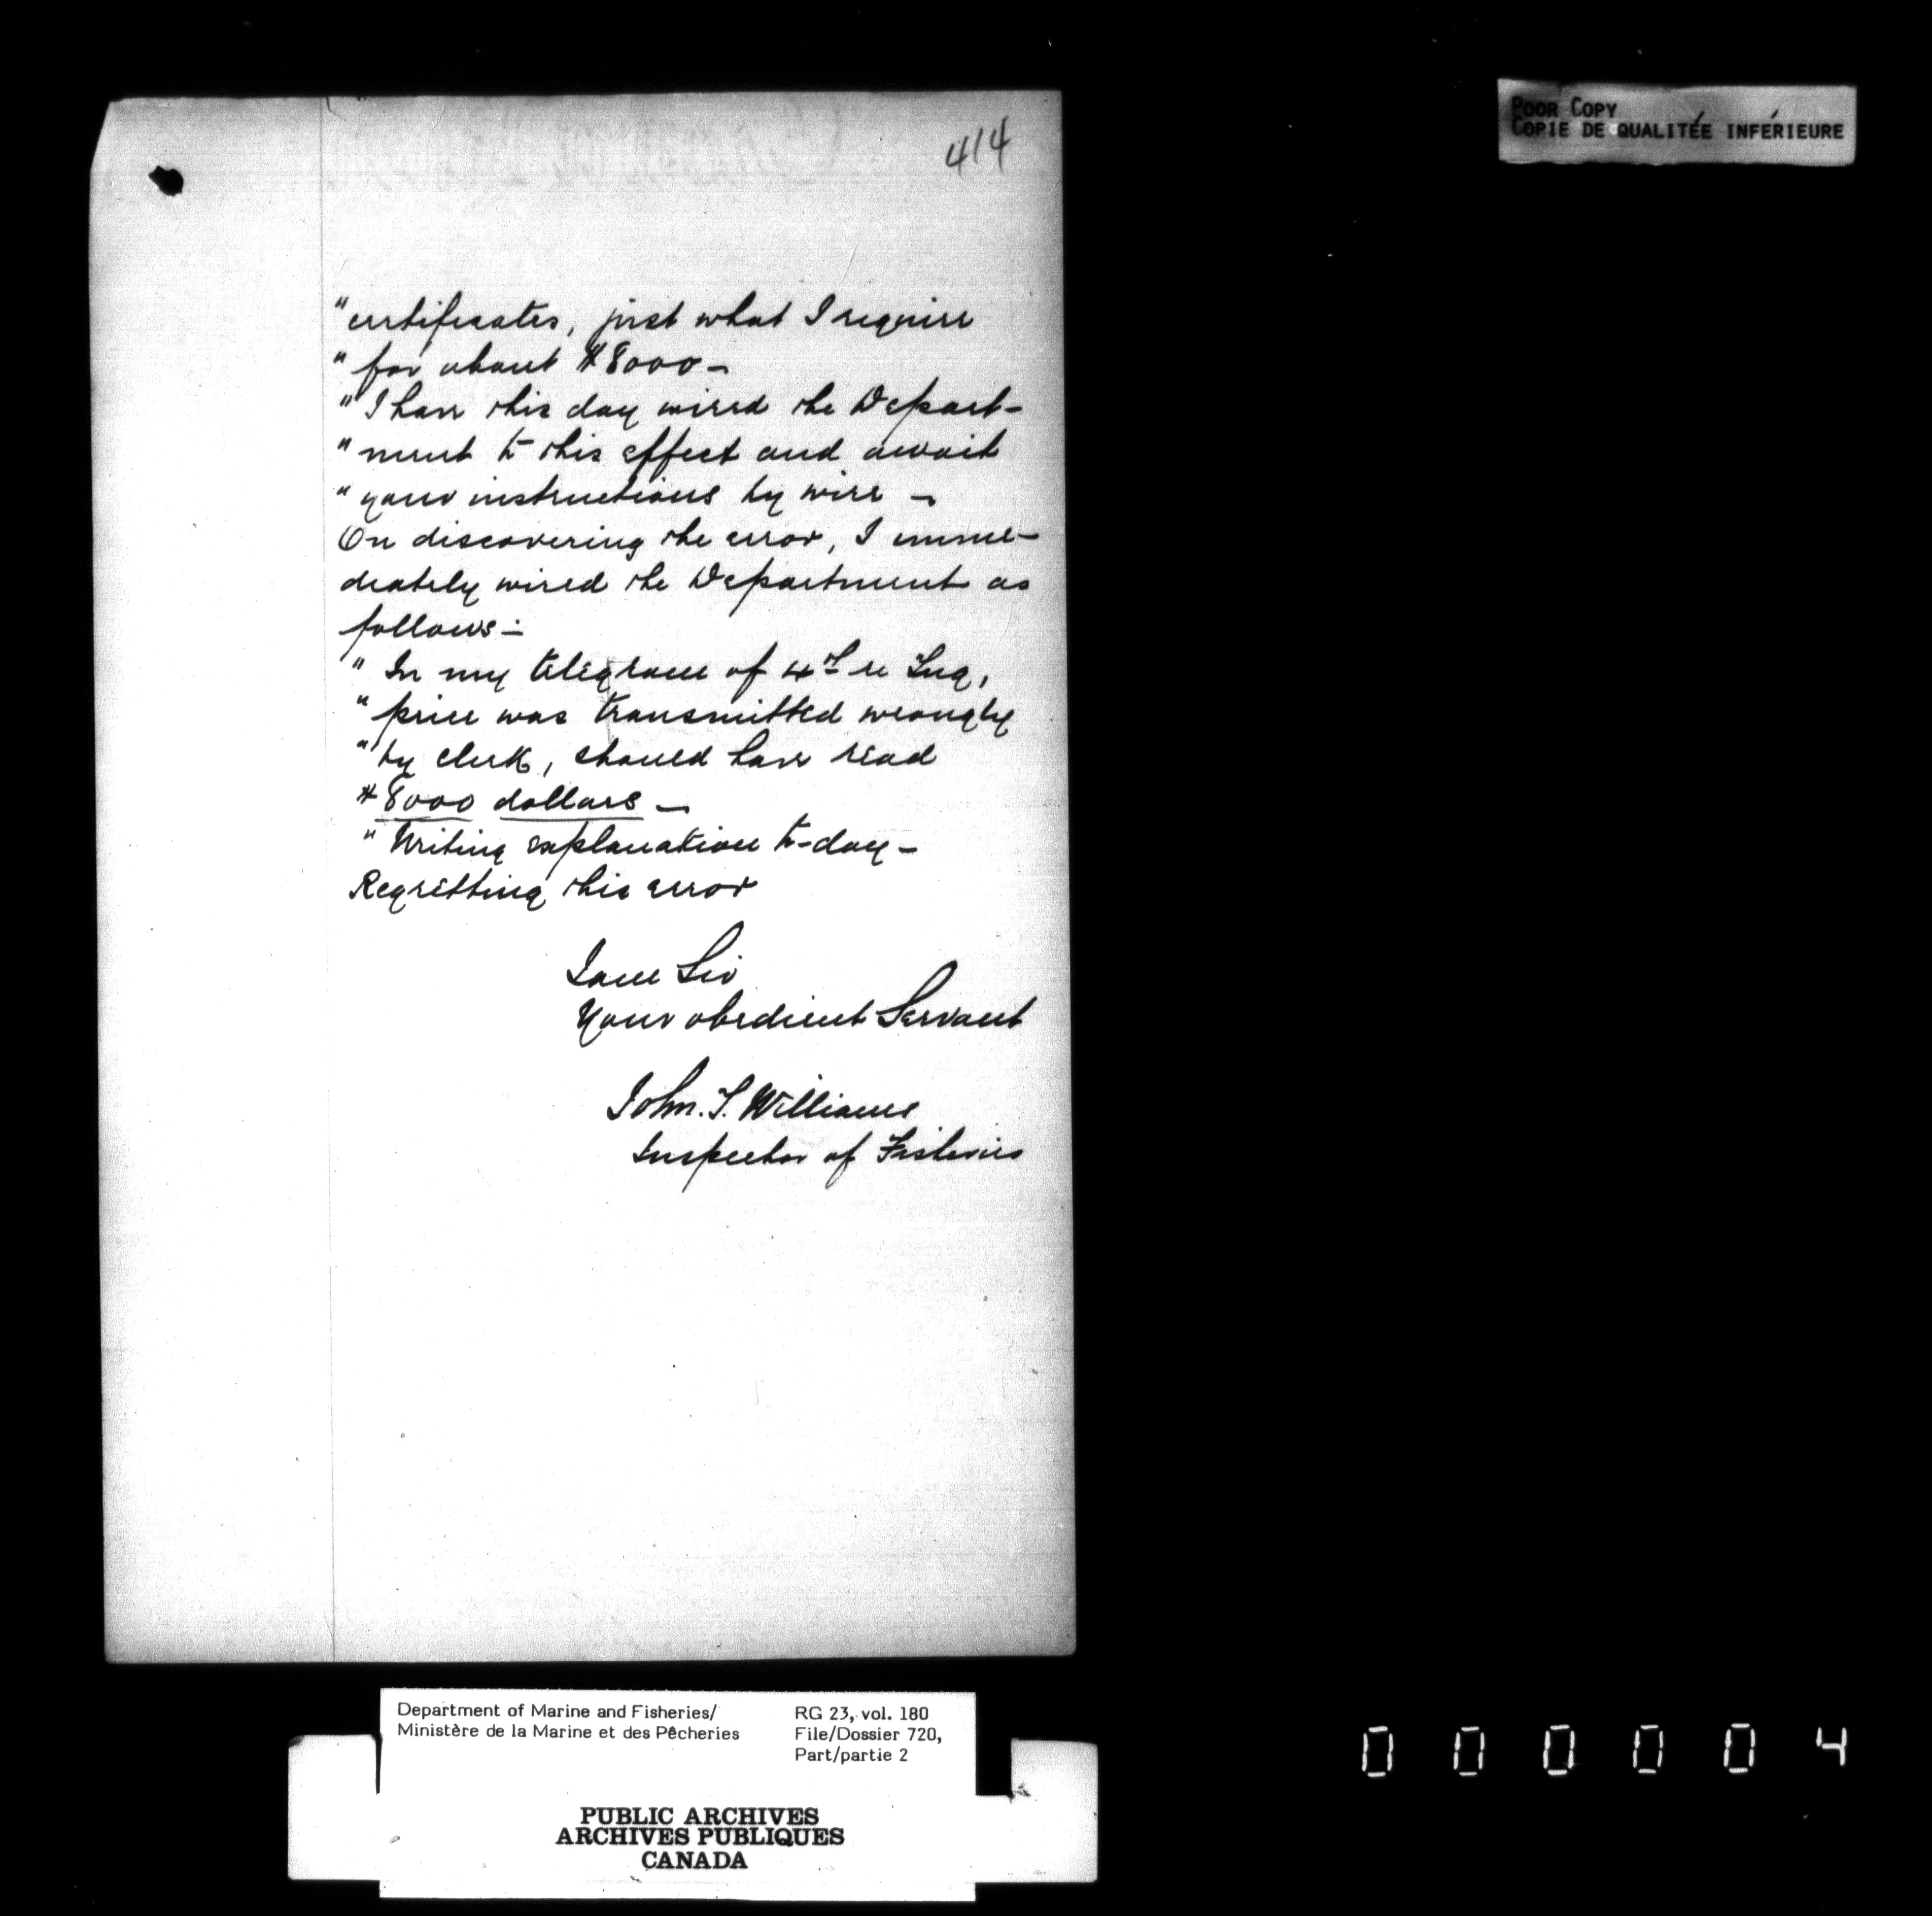 POOR COPY
COPIE DE QUALITÉE INFÉRIEURE
414
"certificates, just what I require
"for about $8000 –
"I have this day wired the Depart-
"ment to this effect and await
"your instructions by wire –
On discovering the error, I imme-
diately wired the Department as
follows :-
" In my telegram of 4th re Tug,
"price was transmitted wrongly
"by clerk, should have read
$8000 dollars –
" Writing explanation to-day –
Regretting this error
I am Sir
Your obedient Servant
John. T. Williams
Inspector of Fisheries
Department of Marine and Fisheries/
Ministère de la Marine et des Pêcheries
RG 23, vol. 180
File/Dossier 720,
Part/partie 2
PUBLIC ARCHIVES
ARCHIVES PUBLIQUES
CANADA
0 0 0 0 0 4